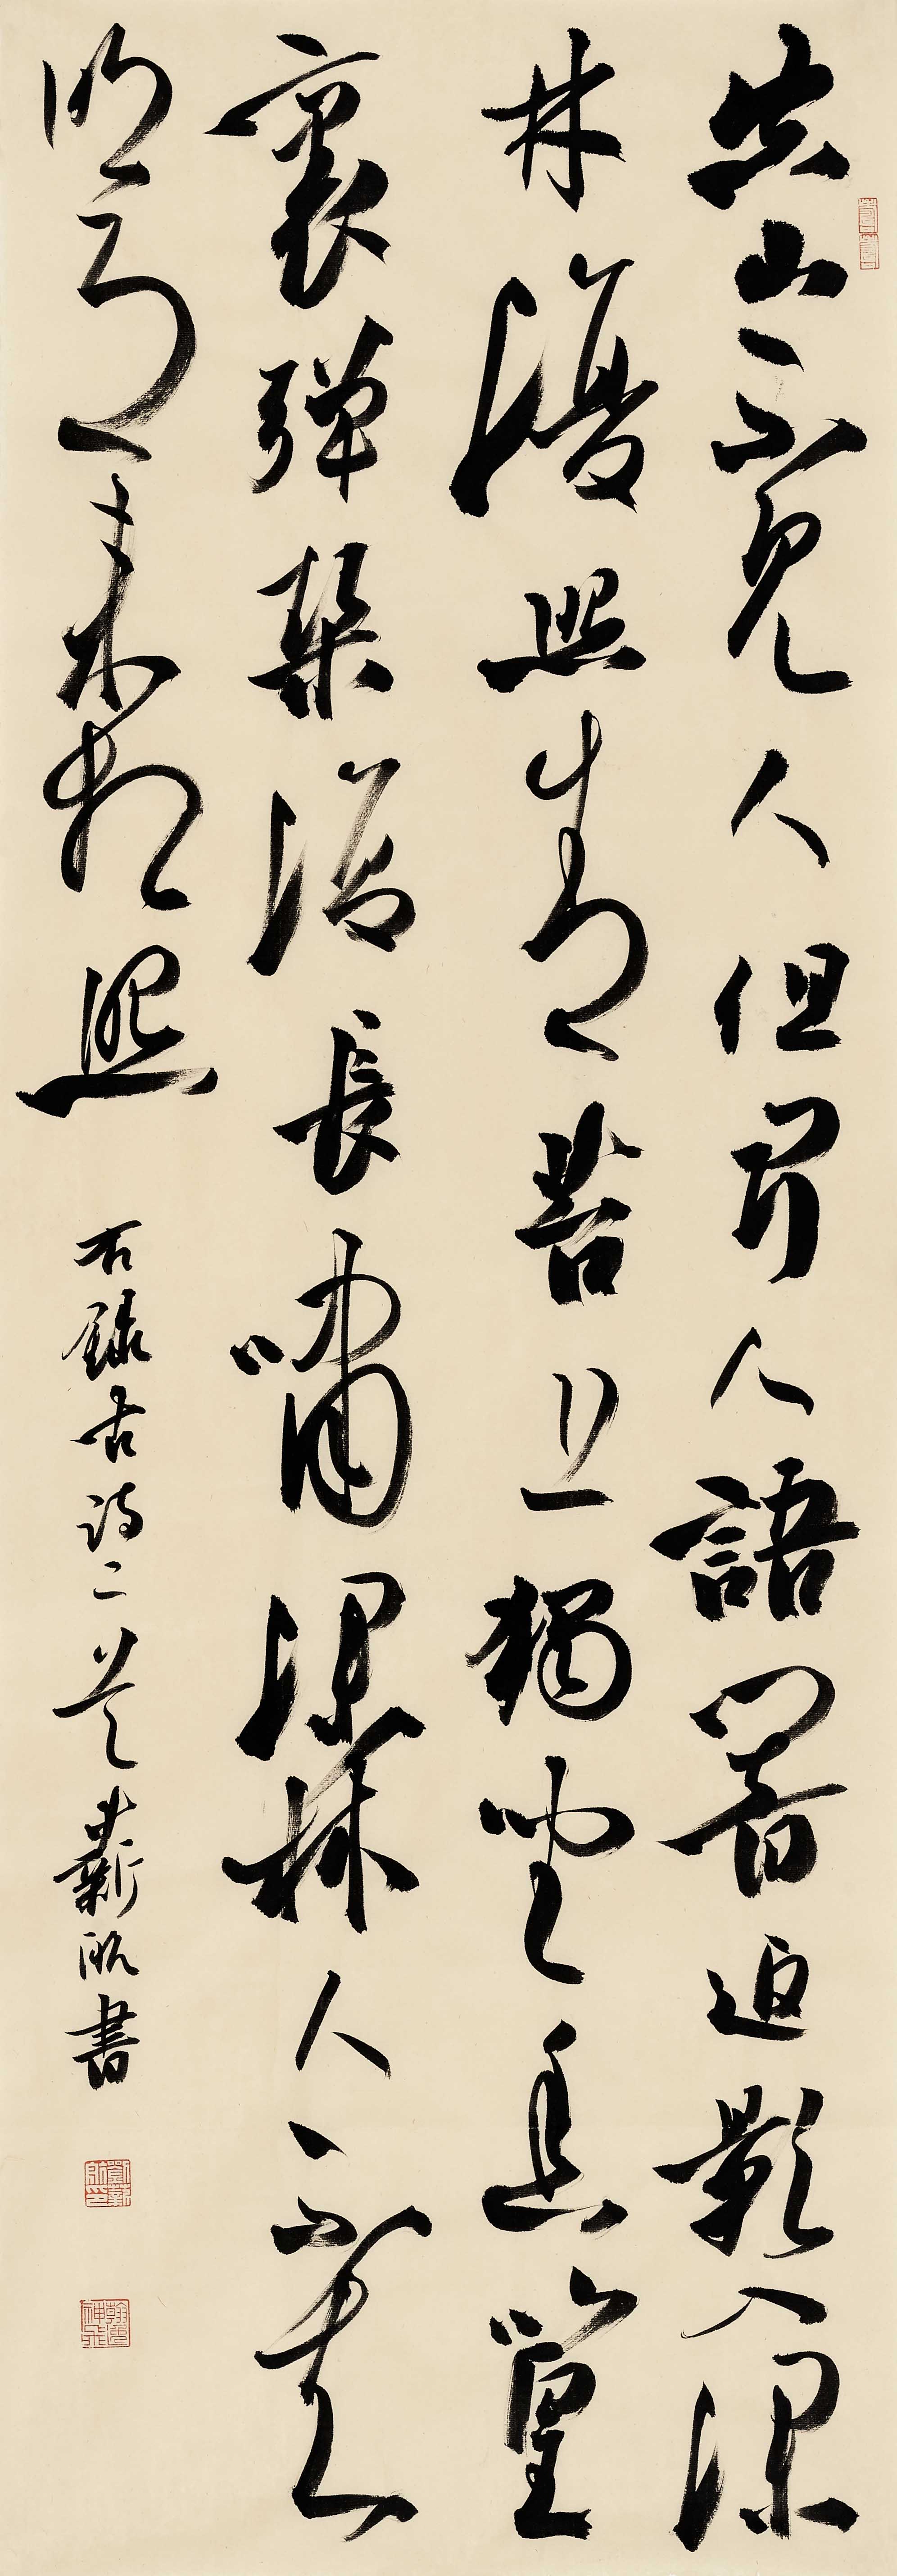 空山不見人但聞人語響返影入深
林復照青苔上獨坐幽篁
裏彈琴復長嘯深林人不知
明月來相照
右錄古詩二首 薪航書